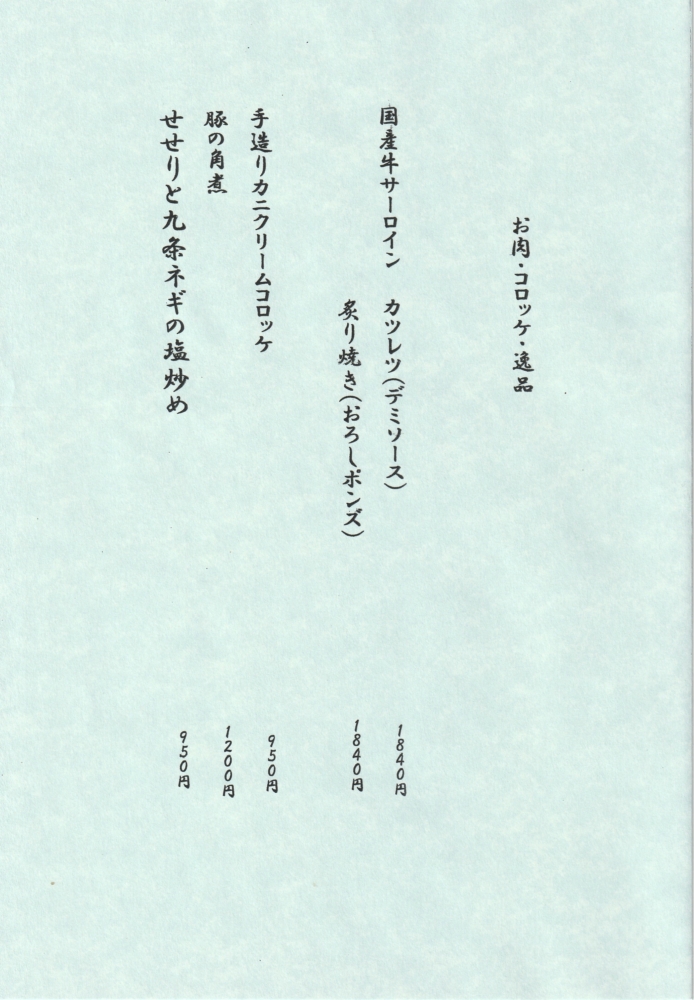 お肉・コロッケ・逸品
国産牛サーロイン カツレツ(デミソース) 1840円
炙り焼き(おろしポンズ) 1840円
手造りカニクリームコロッケ 950円
豚の角煮 1200円
せせりと九条ネギの塩炒め 950円